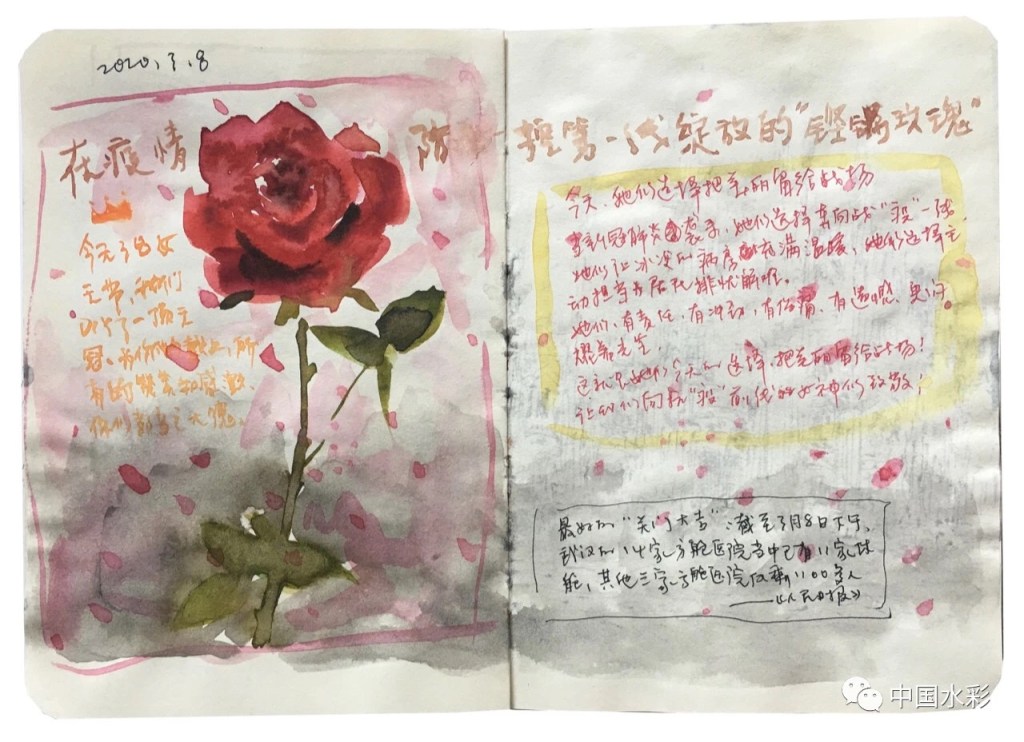 2020.3.8
在疫情防 控第一线绽放的"铿锵玫瑰"
今天3.8女
王节,我们
一顶王
冠,为你
有的赞美和感歌,
你们都当之无愧。
今天,她们选择把美丽留给战场
当新冠肺炎袭来,她们选择奔向战"疫"一线,
她们让冰冷的病房充满温暖,她们选择主
动担当为居民排忧解难。
她们,有责任,有冲动,有

这就是她们今天的选择,把美丽留给战场!
让我们向抗"疫"前线的女神们致敬!
最好的"关门大吉":截至3月8日下午,
武汉的14家方舱医院当中已有11家休
舱,其他三家方舱医院仅剩100多人
——《人民日报》
中国水彩